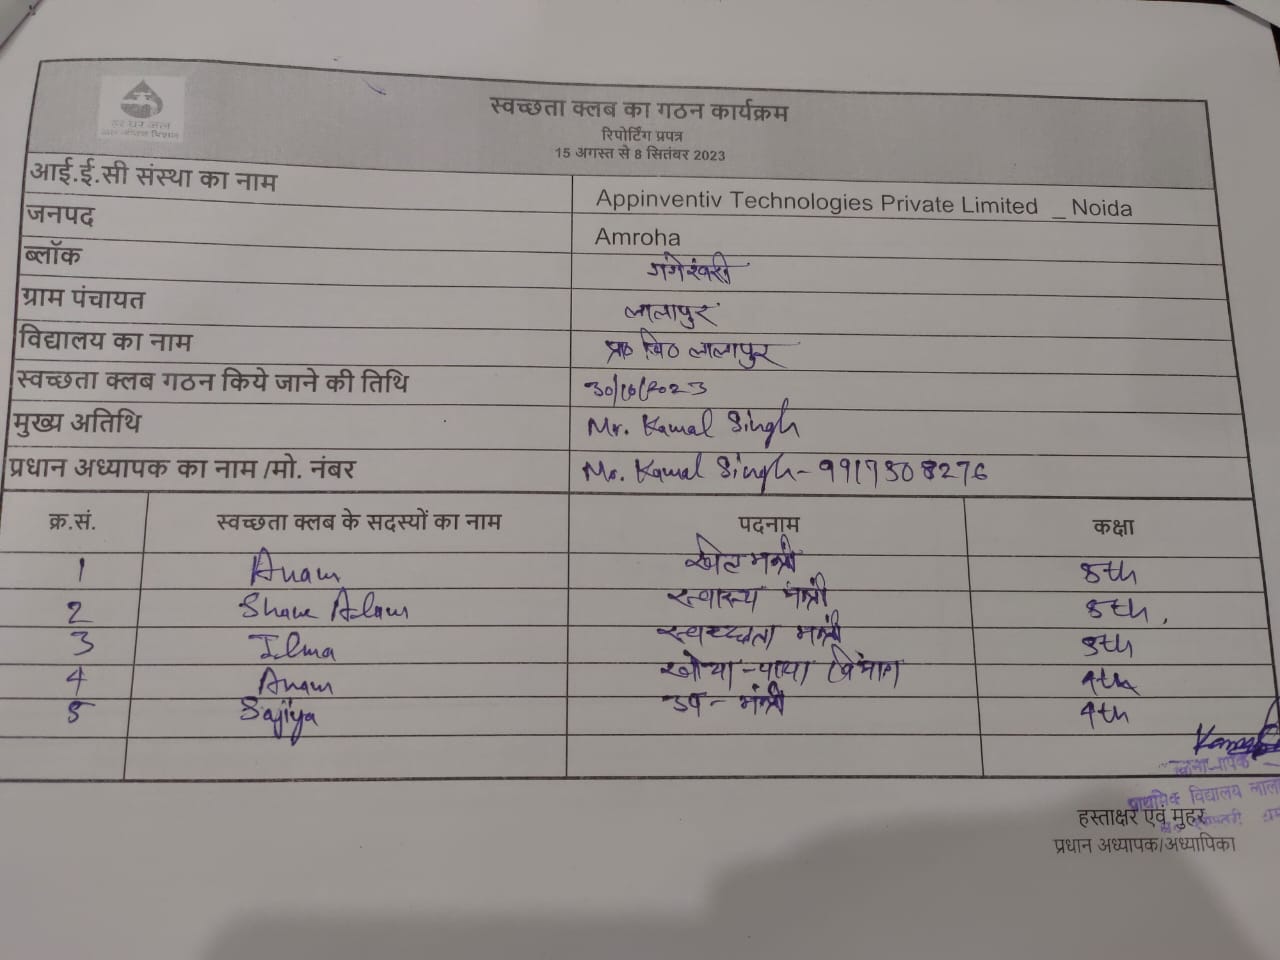 हर घर जल
जल जीवन मिशन
स्वच्छता क्लब का गठन कार्यक्रम
रिपोर्टिंग प्रपत्र
15 अगस्त से 8 सितंबर 2023
आई.ई.सी संस्था का नाम Appinventiv Technologies Private Limited _ Noida
जनपद Amroha
ब्लॉक गंगेश्वरी
ग्राम पंचायत लालापुर
विद्यालय का नाम प्रा० वि० लालापुर
स्वच्छता क्लब गठन किये जाने की तिथि
मुख्य अतिथि Mr. Kamal Singh
प्रधान अध्यापक का नाम /मो. नंबर Mr. Kamal Singh - 9917308276
क्र.सं. स्वच्छता क्लब के सदस्यों का नाम पदनाम कक्षा
1 Anam खेल मन्त्री 5th
2 Shane Alam स्वास्थ्य मंत्री 5th
3 Ilma स्वच्छता मंत्री 5th
4 Anam खोया-पाया विभाग 4th
5 Sajiya उप-मंत्री 4th
प्राथमिक विद्यालय
हस्ताक्षर एवं मुहर
प्रधान अध्यापक/अध्यापिका